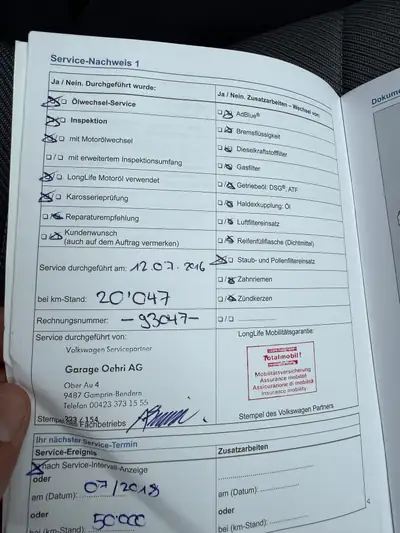 Service-Nachweis 1
Ja / Nein. Durchgeführt wurde:
Ölwechsel-Service
Inspektion
mit Motorölwechsel
mit erweitertem Inspektionsumfang
LongLife Motoröl verwendet
Karosserieprüfung
Reparaturempfehlung
Kundenwunsch
(auch auf dem Auftrag vermerken)
Service durchgeführt am: 12.07.2016
bei km-Stand: 20'047
Rechnungsnummer: -93047-
Ja / Nein. Zusatzarbeiten – Wechsel von:
AdBlue®
Bremsflüssigkeit
Dieselkraftstofffilter
Gasfilter
Getriebeöl: DSG®, ATF
Haldexkupplung: Öl
Luftfiltereinsatz
Reifenfüllflasche (Dichtmittel)
Staub- und Pollenfiltereinsatz
Zahnriemen
Zündkerzen
Service durchgeführt von:
Volkswagen Servicepartner
Garage Oehri AG
Ober Au 4
9487 Gamprin-Bendern
Telefon 00423 373 15 55
Stempel des Fachbetriebs
LongLife Mobilitätsgarantie:
Totalmobil!
Mobilitätsversicherung
Assurance mobilité
Assicurazione di mobilità
Insurance mobility
Stempel des Volkswagen Partners
Ihr nächster Service-Termin
Service-Ereignis
nach Service-Intervall-Anzeige
oder
am (Datum): 07/2018
oder
bei (km-Stand): 50'000
Zusatzarbeiten
am (Datum):
oder
bei (km-Stand):
4
Dokume